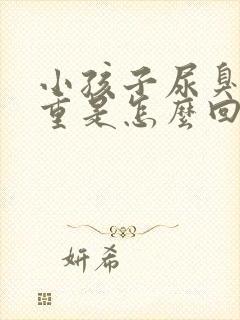 小孩子尿臭
重是怎麼回
妍希